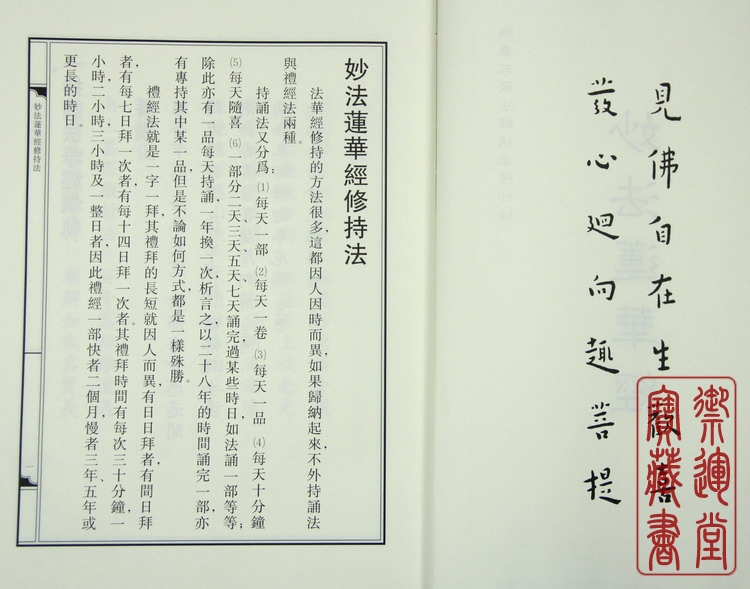 見佛自在生歡喜
發心迴向趣菩提
御運堂
寶藏書
妙法蓮華經修持法
法華經修持的方法很多，這都因人因時而異，如果歸納起來，不外持誦法
與禮經法兩種。
持誦法又分爲：⑴每天一部 ⑵每天一卷 ⑶每天一品 ⑷每天十分鐘
⑸每天隨喜 ⑹一部分二天、三天、五天、七天誦完，過某些時日如法誦一部等等；
除此亦有一品每天持誦，一年換一次，析言之，以二十八年的時間誦完一部，亦
有專持其中某一品，但是不論如何方式，都是一樣殊勝。
禮經法就是一字一拜，其禮拜的長短就因人而異，有日日拜者，有間日拜
者，有每七日拜一次者，有每十四日拜一次者。其禮拜時間有每次三十分鐘、一
小時、二小時、三小時及一整日者，因此禮經一部，快者二個月，慢者三年、五年或
更長的時日。
妙法蓮華經修持法
一